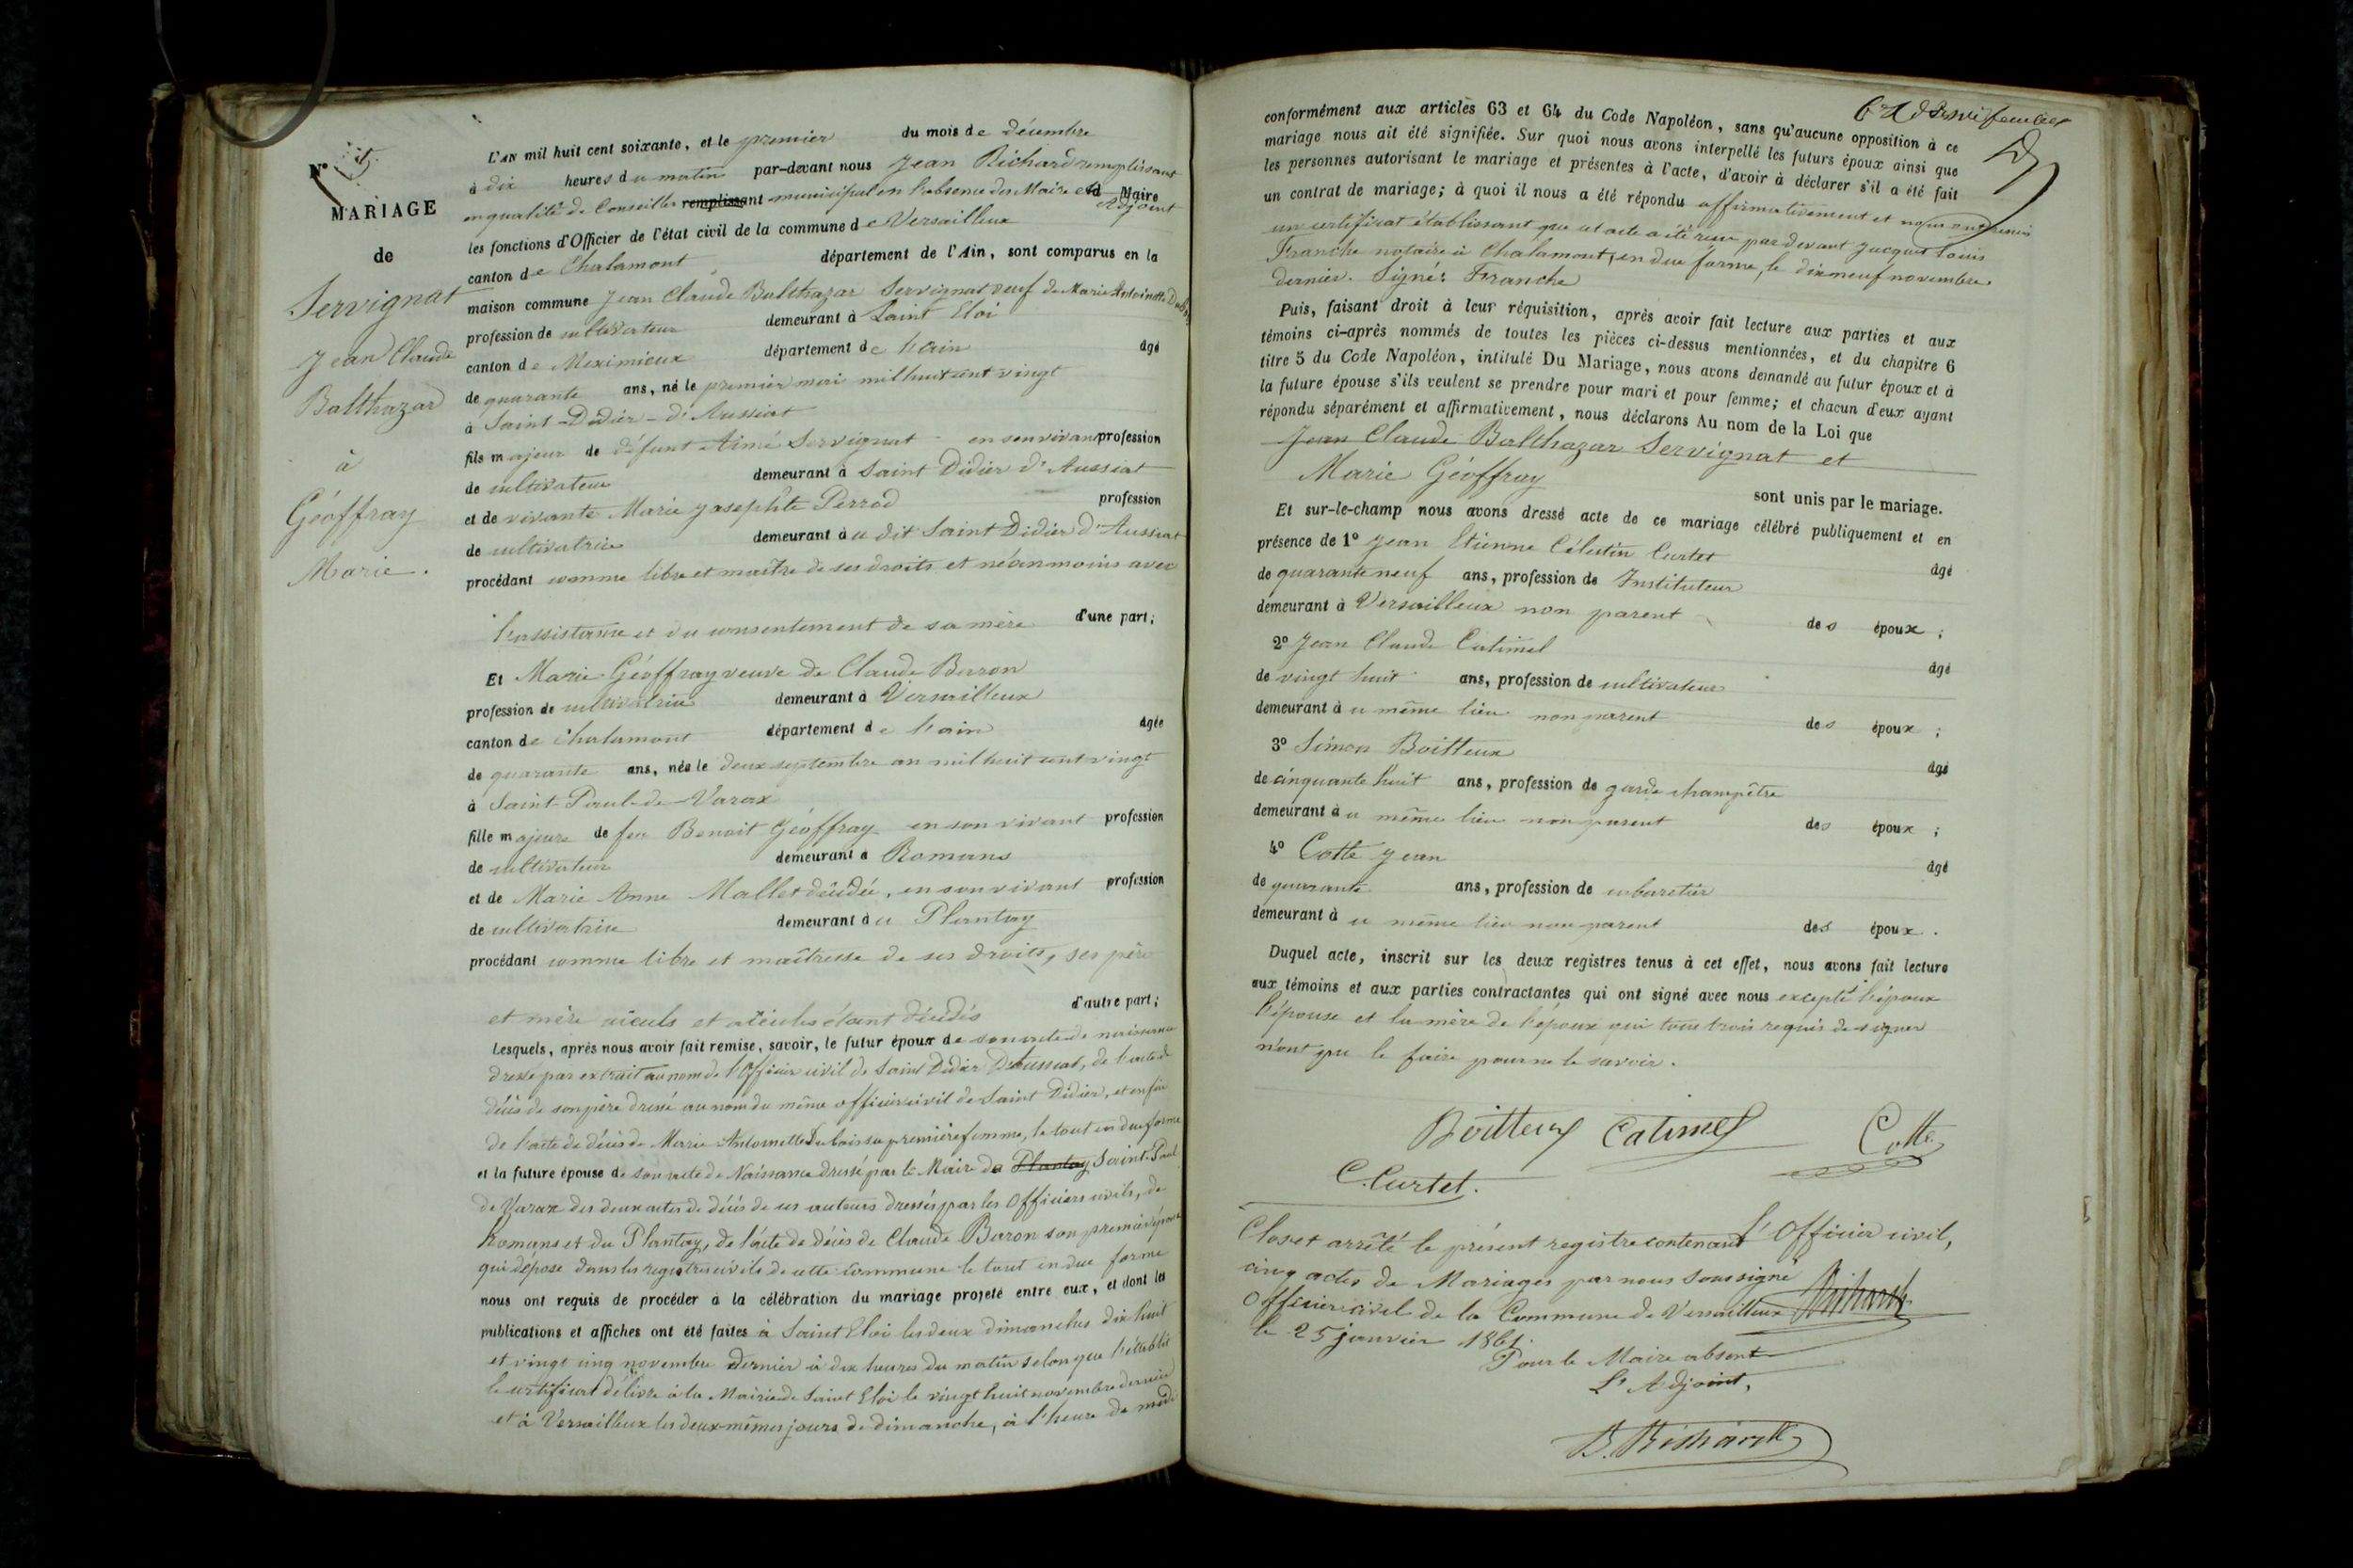 N° 5
MARIAGE
de
Servignat
Jean Claude
Balthazar
à
Géoffray
Marie.
L'AN mil huit cent soixante, et le premier du mois de décembre
à dix heures du matin par-devant nous Jean Richard remplissant
en qualité de Conseiller remplissant municipal en l'absence des Maire et d Maire
Adjoint
les fonctions d'Officier de l'état civil de la commune de Versailleux
canton de Chalamont département de l'Ain, sont comparus en la
maison commune Jean Claude Balthazar Servignat veuf de Marie Antoinette Dubois
profession de cultivateur demeurant à Saint Eloi
canton de Meximieux département de l'ain âgé
de quarante ans, né le premier mai mil huit cent vingt
à Saint-Didier-d'Aussiat
fils majeur de défunt Aimé Servignat en son vivant profession
de cultivateur demeurant à Saint Didier d'Aussiat
et de vivante Marie Josephte Perrod profession
de cultivatrice demeurant au dit Saint Didier d'Aussiat
procédant comme libre et maître de ses droits et néanmoins avec
l'assistance et du consentement de sa mère d'une part;
Et Marie Géoffray veuve de Claude Baron
profession de cultivatrice demeurant à Versailleux
canton de Chalamont département de l'ain âgée
de quarante ans, née le deux septembre an mil huit cent vingt
à Saint-Paul-de-Varax
fille majeure de feu Benoit Géoffray en son vivant profession
de cultivateur demeurant à Romans
et de Marie Anne Mallet décédée, en son vivant profession
de cultivatrice demeurant au Plantay
procédant comme libre et maîtresse de ses droits, ses père
et mère aïeuls et aïeules étant décédés d'autre part;
Lesquels, après nous avoir fait remise, savoir, le futur époux de son acte de naissance
dressé par extrait au nom de l'Officier civil de Saint Didier D'Aussiat, de l'acte de
décès de son père dressé au nom du même officier civil de Saint Didier, et enfin
de l'acte de décès de Marie Antoinette Dubois sa première femme, le tout en due forme
et la future épouse de son acte de Naissance dressé par le Maire de Plantay Saint-Paul
de Varax des deux actes de décès de ses auteurs dressés par les Officiers civils, de
Romans et du Plantay, de l'acte de décès de Claude Baron son premier époux
qui dépose dans les registres civils de cette Commune le tout en due forme
nous ont requis de procéder à la célébration du mariage projeté entre eux, et dont les
publications et affiches ont été faites à Saint Eloi les deux dimanches dix huit
et vingt cinq novembre dernier à dix heures du matin selon que l'établit
le certificat délivré à la Mairie de Saint Eloi le vingt huit novembre dernier
et à Versailleux les deux mêmes jours de dimanche, à l'heure de midi
conformément aux articles 63 et 64 du Code Napoléon, sans qu'aucune opposition à ce
mariage nous ait été signifiée. Sur quoi nous avons interpellé les futurs époux ainsi que
les personnes autorisant le mariage et présentes à l'acte, d'avoir à déclarer s'il a été fait
un contrat de mariage; à quoi il nous a été répondu affirmativement et nous ont remis
un certificat établissant que cet acte a été reçu par devant Jacques Louis
Franche notaire à Chalamont, en due forme, le dix neuf novembre
dernier. Signé: Franche
Puis, faisant droit à leur réquisition, après avoir fait lecture aux parties et aux
témoins ci-après nommés de toutes les pièces ci-dessus mentionnées, et du chapitre 6
titre 5 du Code Napoléon, intitulé Du Mariage, nous avons demandé au futur époux et à
la future épouse s'ils veulent se prendre pour mari et pour femme; et chacun d'eux ayant
répondu séparément et affirmativement, nous déclarons Au nom de la Loi que
Jean Claude Balthazar Servignat et
Marie Géoffray
sont unis par le mariage.
Et sur-le-champ nous avons dressé acte de ce mariage célébré publiquement et en
présence de 1° Jean Etienne Célestin Curtet âgé
de quarante neuf ans, profession de Instituteur
demeurant à Versailleux non parent des époux;
2° Jean Claude Catimel âgé
de vingt huit ans, profession de cultivateur
demeurant au même lieu non parent des époux;
3° Simon Boitteux âgé
de cinquante huit ans, profession de garde champêtre
demeurant au même lieu non parent des époux;
4° Cotte Jean âgé
de quarante ans, profession de cabaretier
demeurant au même lieu non parent des époux.
Duquel acte, inscrit sur les deux registres tenus à cet effet, nous avons fait lecture
aux témoins et aux parties contractantes qui ont signé avec nous excepté l'époux
l'épouse et la mère de l'époux qui tous trois requis de signer
n'ont pu le faire pour ne le savoir.
Boitteux Catimel Cotte
C. Curtet.
l'Officier civil,
Clos et arrêté le présent registre contenant
cinq actes de Mariages par nous soussigné
Officier civil de la Commune de Versailleux Richard
le 25 janvier 1861.
Pour le Maire absent
L'Adjoint,
B. Richard